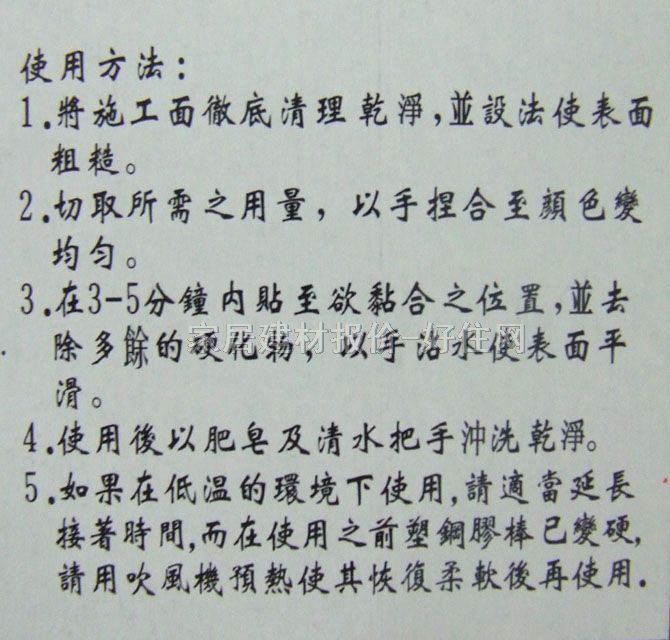 使用方法：
1.將施工面徹底清理乾淨,並設法使表面
粗糙。
2.切取所需之用量，以手捏合至顏色變
均勻。
3.在3-5分鐘內貼至欲黏合之位置,並去
除多餘的硬化物，以手沾水使表面平
滑。
家居建材报价-好住网
4.使用後以肥皂及清水把手沖洗乾淨。
5.如果在低溫的環境下使用,請適當延長
接著時間,而在使用之前塑鋼膠棒已變硬,
請用吹風機預熱使其恢復柔軟後再使用.